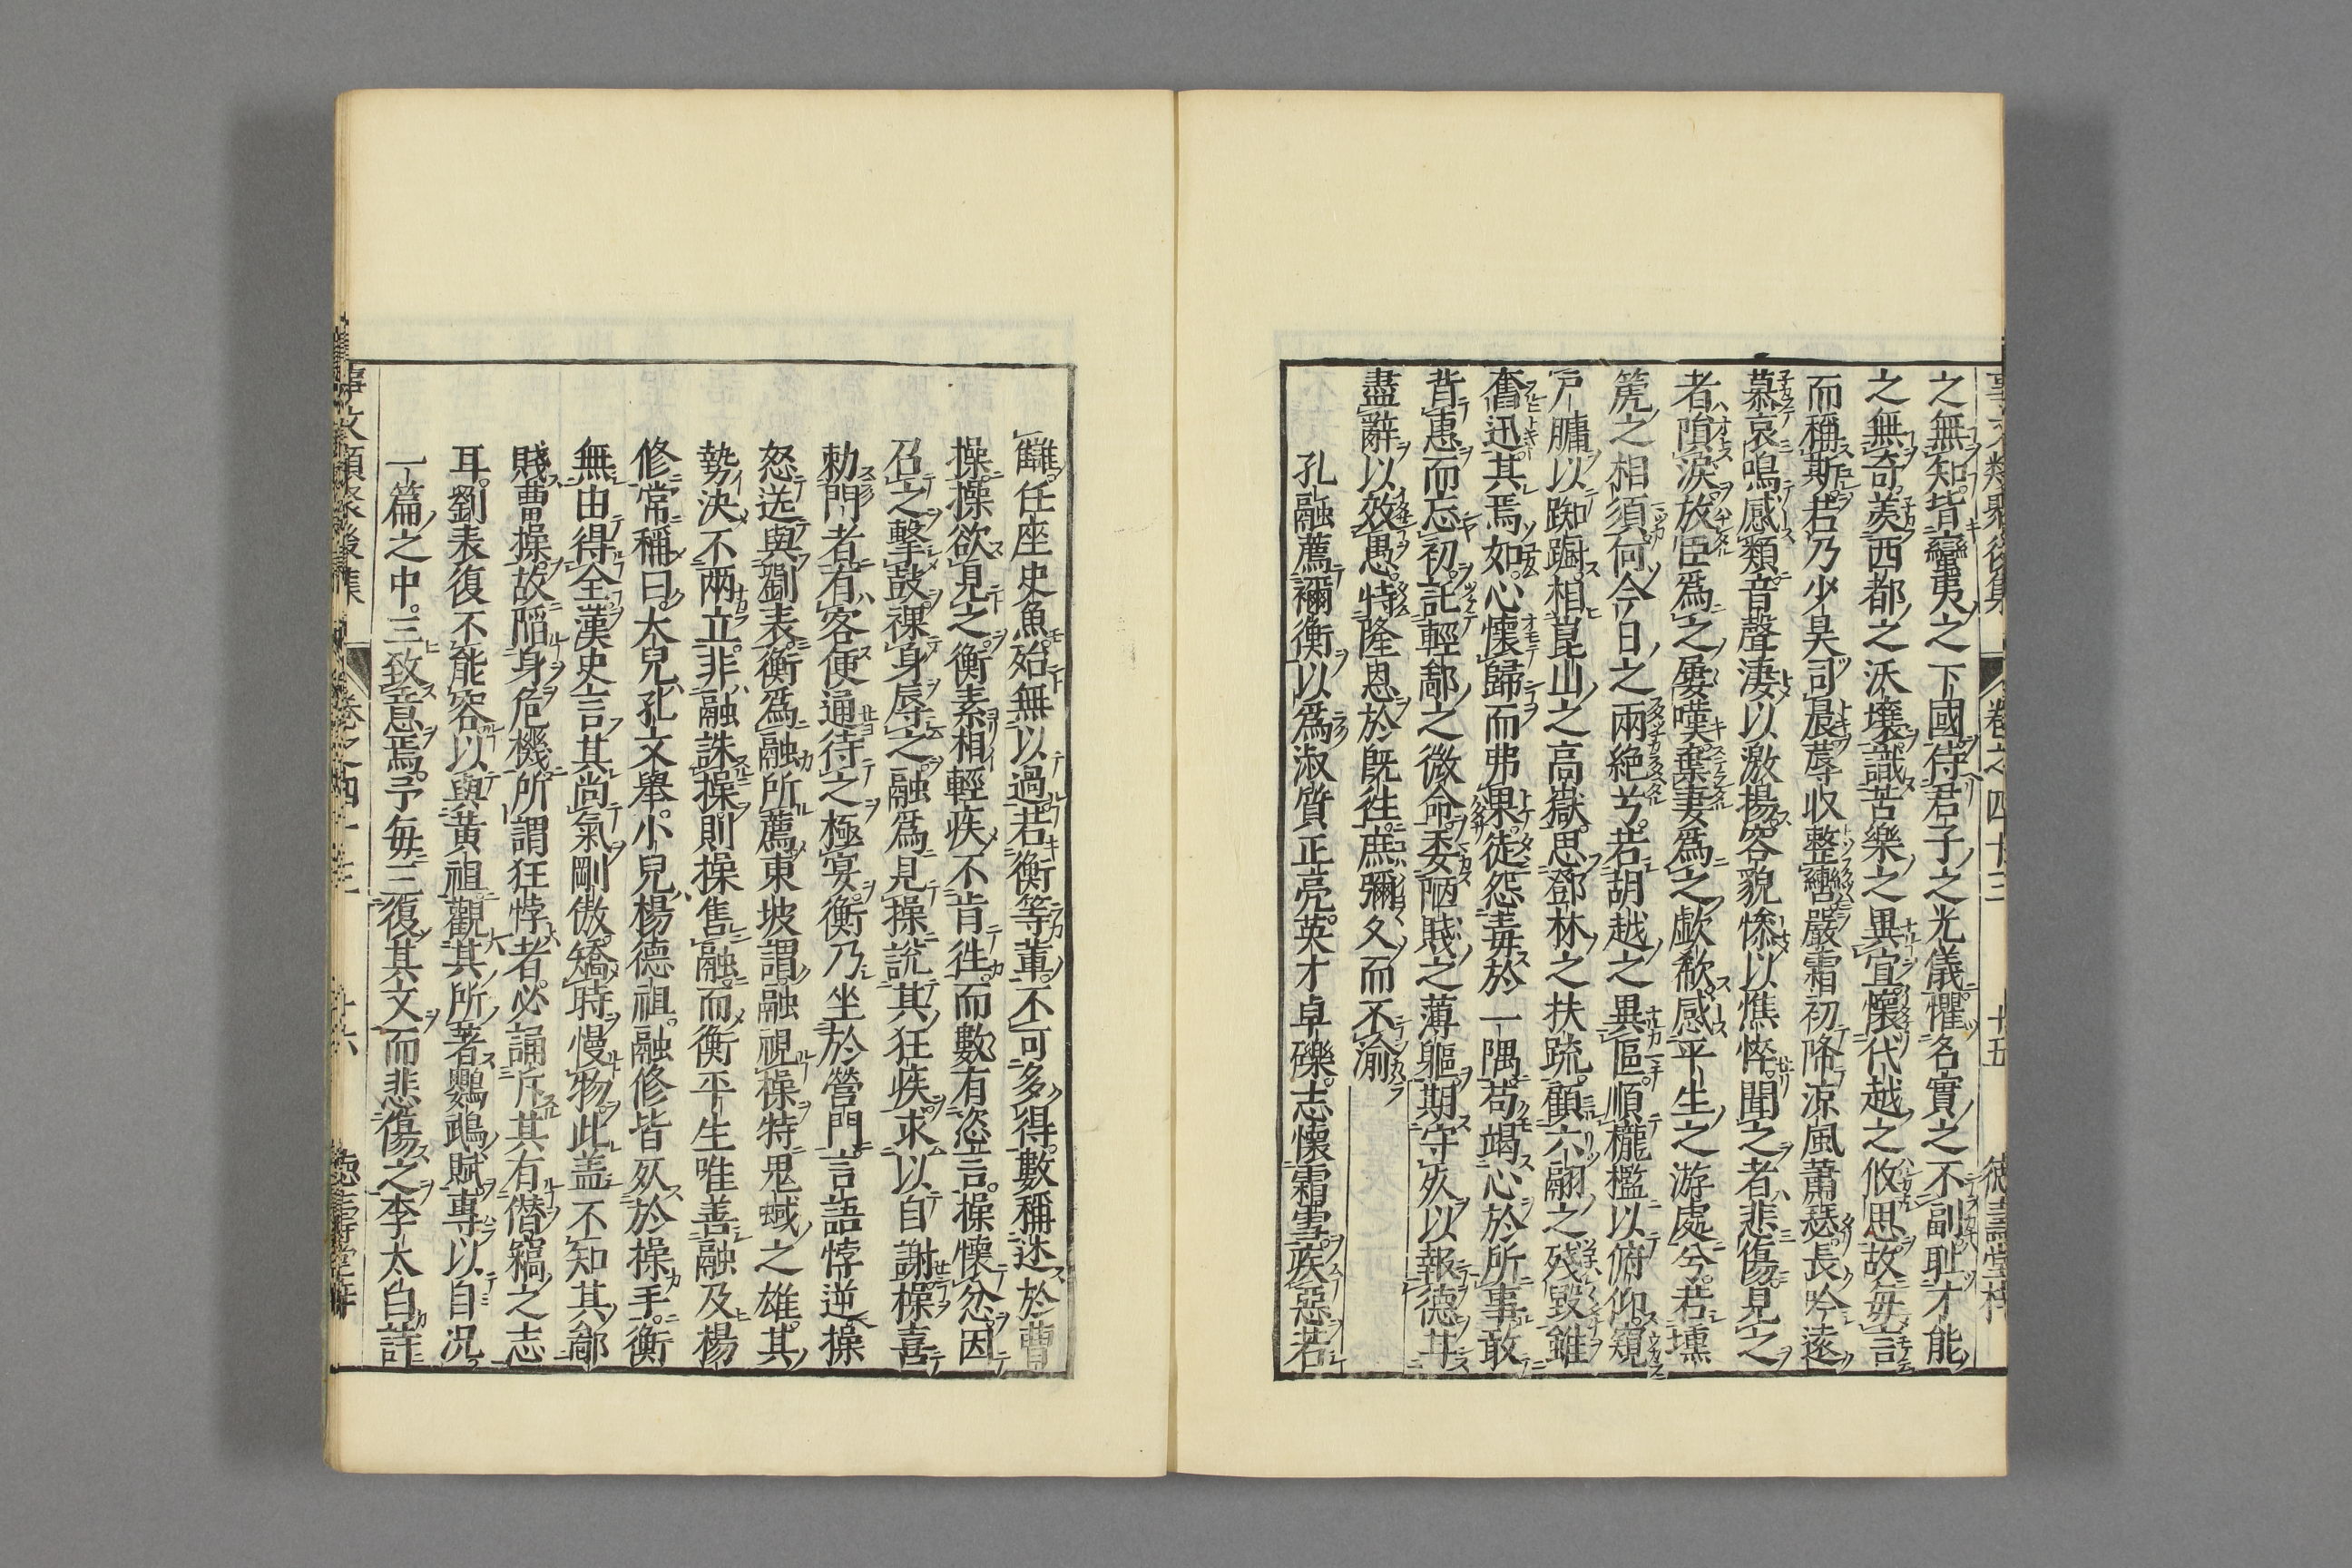 之無知皆蠻夷之下國待君子之光儀懼名實之不副耻才能
之無奇羨西都之沃壤識苦樂之異宜懷代越之悠思故毎言
而稱斯若乃少昊司晨蓐収整轡嚴霜初降涼風蕭瑟長吟遠
慕哀鳴感類音聲淒以激揚容貌慘以憔悴聞之者悲傷見之
者隕淚放臣爲之屢嘆棄妻爲之歔欷感平生之游處兮若壎
箎之相須何今日之兩絶兮若胡越之異區順櫳檻以俯仰窺
戸牖以踟蹰相崑山之高嶽思鄧林之扶䟽顧六翮之殘毀雖
奮迅其焉如心懷歸而弗果徒怨毒於一隅苟竭心於所事敢
背惠而忘初託輕鄙之微命委陋賤之薄軀期守死以報德甘
盡辭以效愚特隆恩於既徃庶彌久而不渝
孔融薦禰衡以爲淑質正亮英才卓礫志懷霜雪疾惡若
讎任座史魚殆無以過若衡等輩不可多得數稱述於曹
操操欲見之衡素相輕疾不肯徃而數有恣言操懷忿因
召之擊鼓裸身辱之融爲見操說其狂疾求以自謝操喜
勑門者有客便通待之極宴衡乃坐於營門言語悖逆操
怒送與劉表衡爲融所薦東坡謂融視操特鬼蜮之雄其
勢決不兩立非融誅操則操害融而衡平生唯善融及楊
修常稱曰大兒孔文舉小兒楊德祖融修皆死於操手衡
無由得全漢史言其尚氣剛傲矯時慢物此盖不知其鄙
賤曹操故陷身危機所謂狂悖者必誦斥其有僣簒之志
耳劉表復不能容以與黃祖觀其所著鸚鵡賦專以自况
一篇之中三致意焉予毎三復其文而悲傷之李太白詩
事文類聚後集 卷之四十三 十六